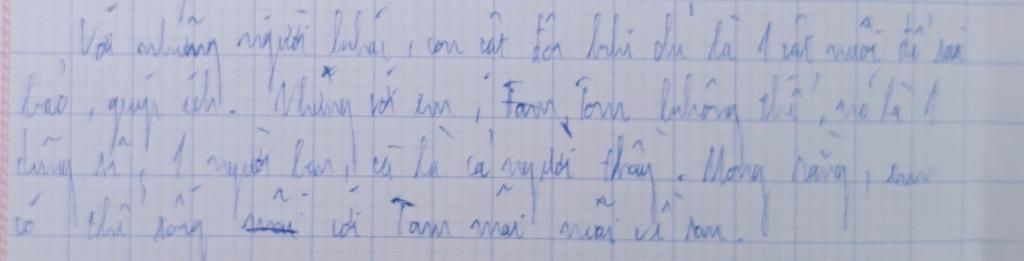 Với những người khác, con vật đôi khi chỉ là 1 vật nuôi để sai
bảo, giúp ích. Nhưng với em, Tom không thế, nó là 1
dũng sĩ, 1 người bạn, và là cả người thầy. Mong rằng, em
có thể sống với Tom mãi mãi về sau.